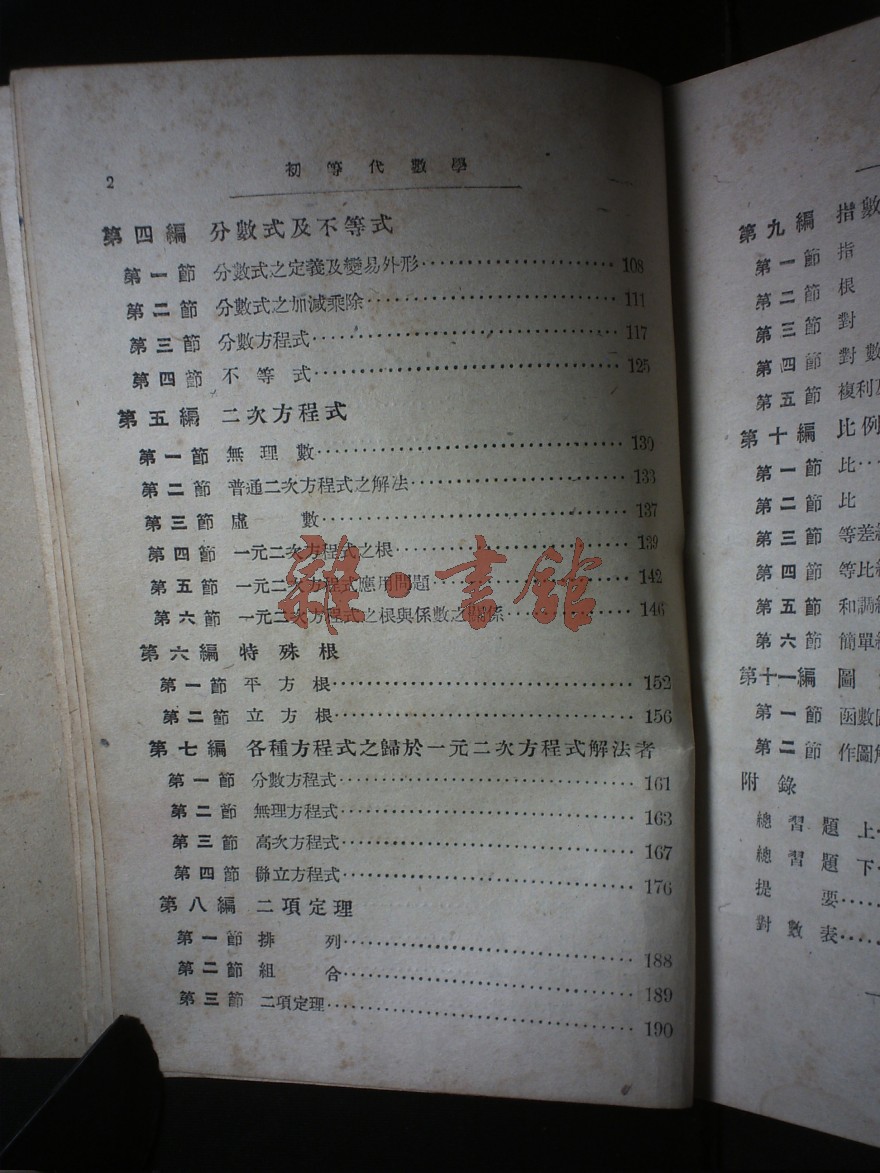 2
初等代數學
第四編 分數式及不等式
第一節 分數式之定義及變易外形 108
第二節 分數式之加減乘除 111
第三節 分數方程式 117
第四節 不等式 125
第五編 二次方程式
第一節 無理數 130
第二節 普通二次方程式之解法 133
第三節 虛數 137
第四節 一元二次方程式之根 139
第五節 一元二次方程式應用問題 142
第六節 一元二次方程式之根與係數之關係 146
第六編 特殊根
第一節 平方根 152
第二節 立方根 156
第七編 各種方程式之歸於一元二次方程式解法者
第一節 分數方程式 161
第二節 無理方程式 163
第三節 高次方程式 167
第四節 聯立方程式 176
第八編 二項定理
第一節 排列 188
第二節 組合 189
第三節 二項定理 190
雜·書館
第九編 指數
第一節 指
第二節 根
第三節 對
第四節 對數
第五節 複利
第十編 比例
第一節 比
第二節 比
第三節 等差
第四節 等比
第五節 和調
第六節 簡單
第十一編 圖
第一節 函數
第二節 作圖
附錄
總習題上
總習題下
提要
對數表